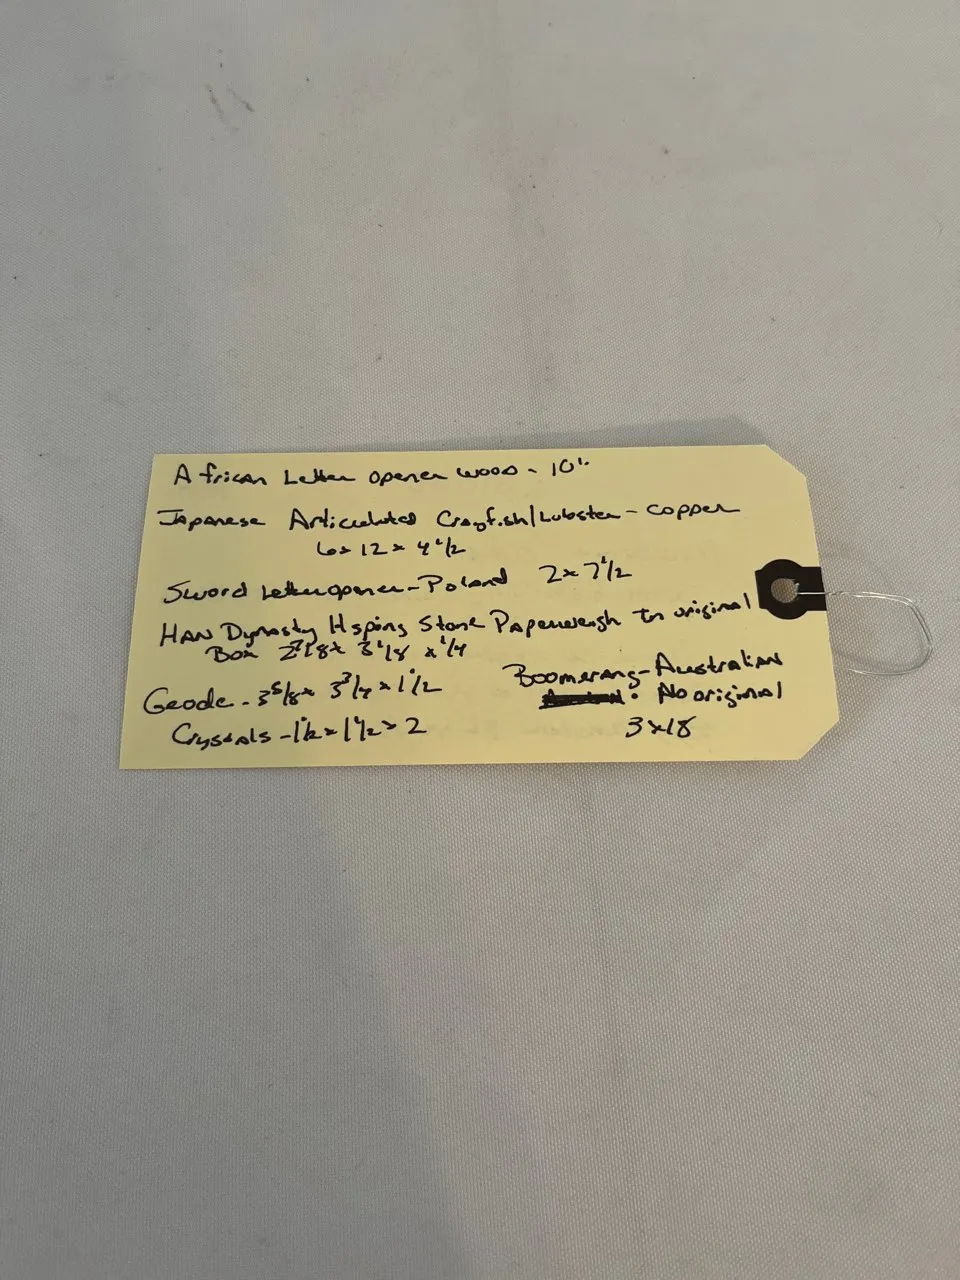 African Letter opener wood - 10"
Japanese Articulated Crayfish/Lobster - copper
6 x 12 x 4 1/2
Sword Letter opener - Poland 2 x 7 1/2
HAN Dynasty Hsping Stone Paperweigh In original
Box 2 7/8 x 3 1/8 x 1/4
Geode - 3 5/8 x 3 3/4 x 1 1/2
Crystals - 1 1/2 x 1 1/2 x 2
Boomerang - Australian
: Aboriginal
3 x 18